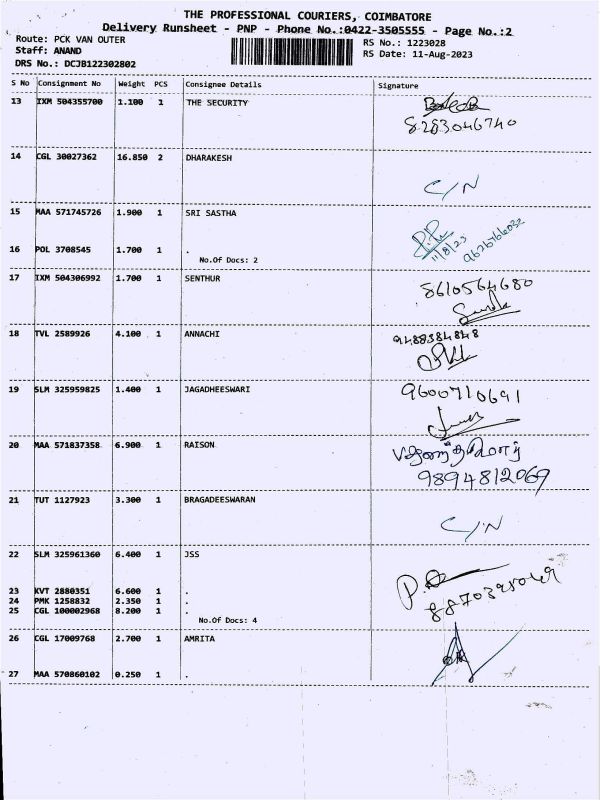 THE PROFESSIONAL COURIERS, COIMBATORE
Delivery Runsheet - PNP - Phone No.:0422-3505555 - Page No.:2
Route: PCK VAN OUTER
RS No.: 1223028
Staff: ANAND
RS Date: 11-Aug-2023
DRS No.: DCJB122302802
S No Consignment No Weight PCS Consignee Details Signature
13 IXM 504355700 1.100 1 THE SECURITY
8283046740
14 CGL 30027362 16.850 2 DHARAKESH
C/N
15 MAA 571745726 1.900 1 SRI SASTHA
11/8/23 9626766032
16 POL 3708545 1.700 1 .
No.Of Docs: 2
17 IXM 504306992 1.700 1 SENTHUR 8610564680
18 TVL 2589926 4.100 1 ANNACHI 9488384848
19 SLM 325959825 1.400 1 JAGADHEESWARI 9600710691
20 MAA 571837358 6.900 1 RAISON
9894812069
21 TUT 1127923 3.300 1 BRAGADEESWARAN
C/N
22 SLM 325961360 6.400 1 JSS
23 KVT 2880351 6.600 1 .
24 PMK 1258832 2.350 1 .
25 CGL 100002968 8.200 1 .
No.Of Docs: 4
26 CGL 17009768 2.700 1 AMRITA
27 MAA 570860102 0.250 1 .